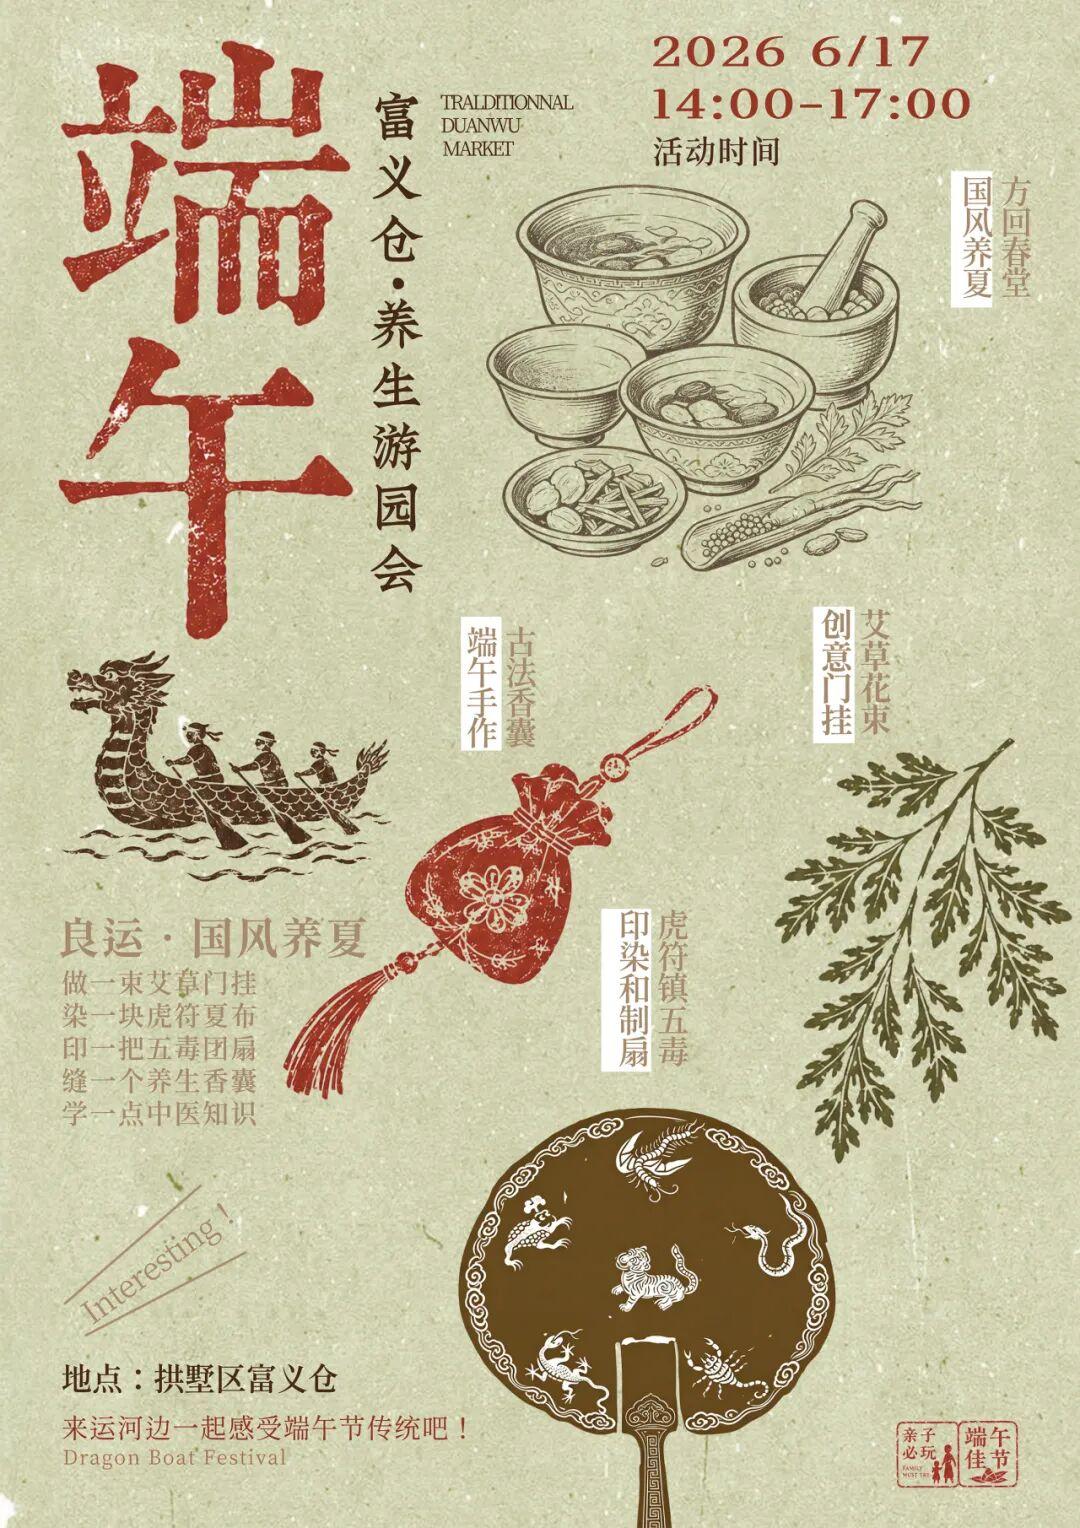 端午
富义仓·养生游园会
TRALDITIONNAL
DUANWU
MARKET
2026 6/17
14:00-17:00
活动时间
方回春堂
国风养夏
古法香囊
端午手作
艾草花束
创意门挂
虎符镇五毒
印染和制扇
良运·国风养夏
做一束艾草门挂
染一块虎符夏布
印一把五毒团扇
缝一个养生香囊
学一点中医知识
Interesting!
地点：拱墅区富义仓
来运河边一起感受端午节传统吧！
Dragon Boat Festival
亲子
必玩
FAMILY
MUST TRY
端午
佳节